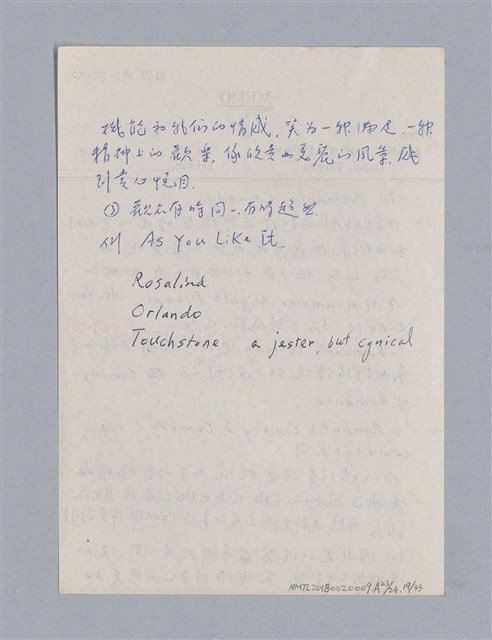 機能和我們的情感，笑为一種滿足，一種
精神上的歡樂，像欣賞山克麗的風景，感
到賞心悅目.
③ 觀众有時同一有時超然.
例 As You Like It.
Rosalind
Orlando
Touchstone a jester, but cynical
NMTL20180020009.A23/24.19/33